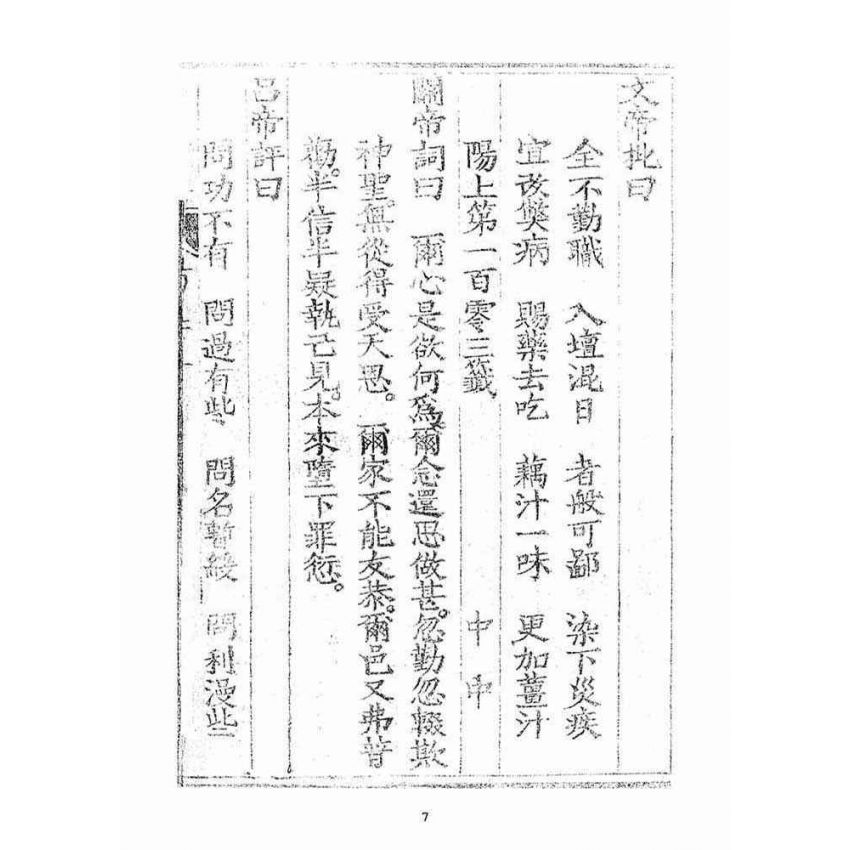 文帝批曰
全不勤職　入壇混日　者般可鄙　染下災疾
宜改獘病　賜藥去吃　藕汁一味　更加薑汁
陽上第一百零三籤　中中
關帝詞曰　爾心是欲何為爾念還思做甚。忽勤忽輟欺
神聖無從得受天恩。爾家不能友恭。爾邑又弗普
勸。半信半疑執己見。本來墮下罪愆。
呂帝評曰
問功不有　問過有些　問名暫緩　問利漫些
7